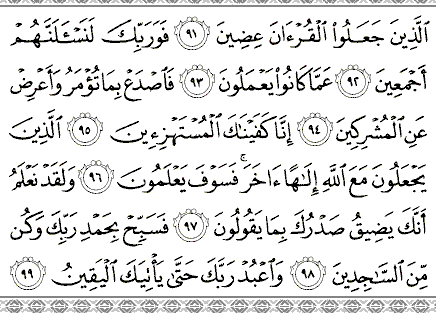 ٱلَّذِينَ جَعَلُوا۟ ٱلْقُرْءَانَ عِضِينَ ٩١ فَوَرَبِّكَ لَنَسْـَٔلَنَّهُمْ
أَجْمَعِينَ ٩٢ عَمَّا كَانُوا۟ يَعْمَلُونَ ٩٣ فَٱصْدَعْ بِمَا تُؤْمَرُ وَأَعْرِضْ
عَنِ ٱلْمُشْرِكِينَ ٩٤ إِنَّا كَفَيْنَٰكَ ٱلْمُسْتَهْزِءِينَ ٩٥ ٱلَّذِينَ
يَجْعَلُونَ مَعَ ٱللَّهِ إِلَٰهًا ءَاخَرَ ۚ فَسَوْفَ يَعْلَمُونَ ٩٦ وَلَقَدْ نَعْلَمُ
أَنَّكَ يَضِيقُ صَدْرُكَ بِمَا يَقُولُونَ ٩٧ فَسَبِّحْ بِحَمْدِ رَبِّكَ وَكُن
مِّنَ ٱلسَّٰجِدِينَ ٩٨ وَٱعْبُدْ رَبَّكَ حَتَّىٰ يَأْتِيَكَ ٱلْيَقِينُ ٩٩